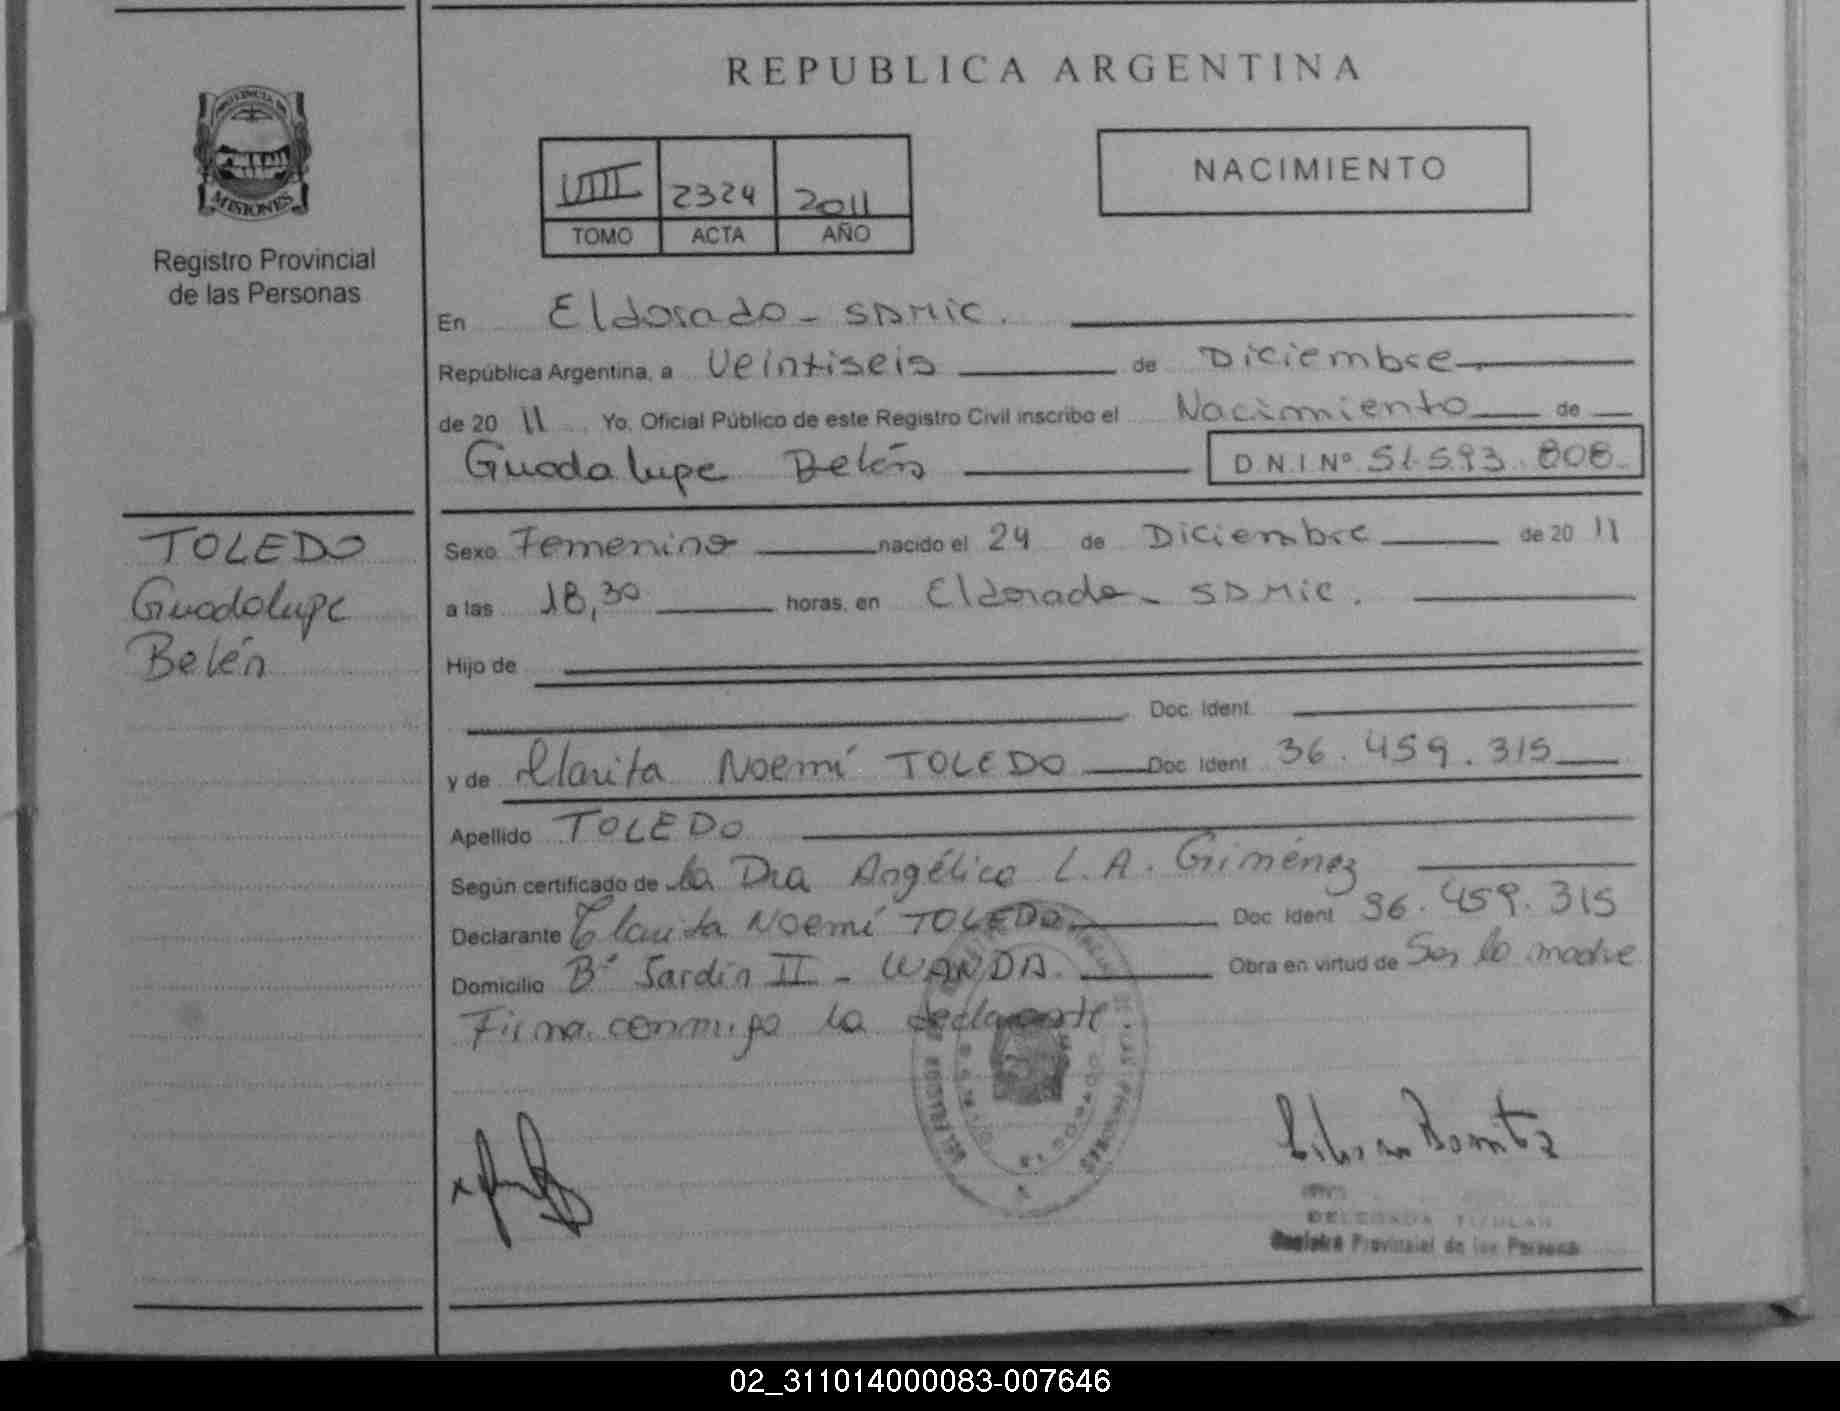 REPUBLICA ARGENTINA
PROVINCIA DE
MISIONES
Registro Provincial
de las Personas
VIII 2324 2011
TOMO ACTA AÑO
NACIMIENTO
En Eldorado - SDMIC.
República Argentina, a Veintiseis de Diciembre
de 20 11 Yo, Oficial Público de este Registro Civil inscribo el Nacimiento de
Guadalupe Belén D.N.I Nº 51.593.808
TOLEDO
Guadalupe
Belén
Sexo Femenino nacido el 24 de Diciembre de 20 11
a las 18,30 horas, en Eldorado - SDMIC.
Hijo de
Doc. Ident.
y de Clarita Noemí TOLEDO Doc. Ident. 36.459.315
Apellido TOLEDO
Según certificado de la Dra Angélica L.A. Giménez
Declarante Clarita Noemí TOLEDO Doc. Ident. 36.459.315
Domicilio Bº Jardín II - WANDA. Obra en virtud de Ser la madre
Firma conmigo la declarante
DELEGADA TITULAR
Registro Provincial de las Personas
02_311014000083-007646